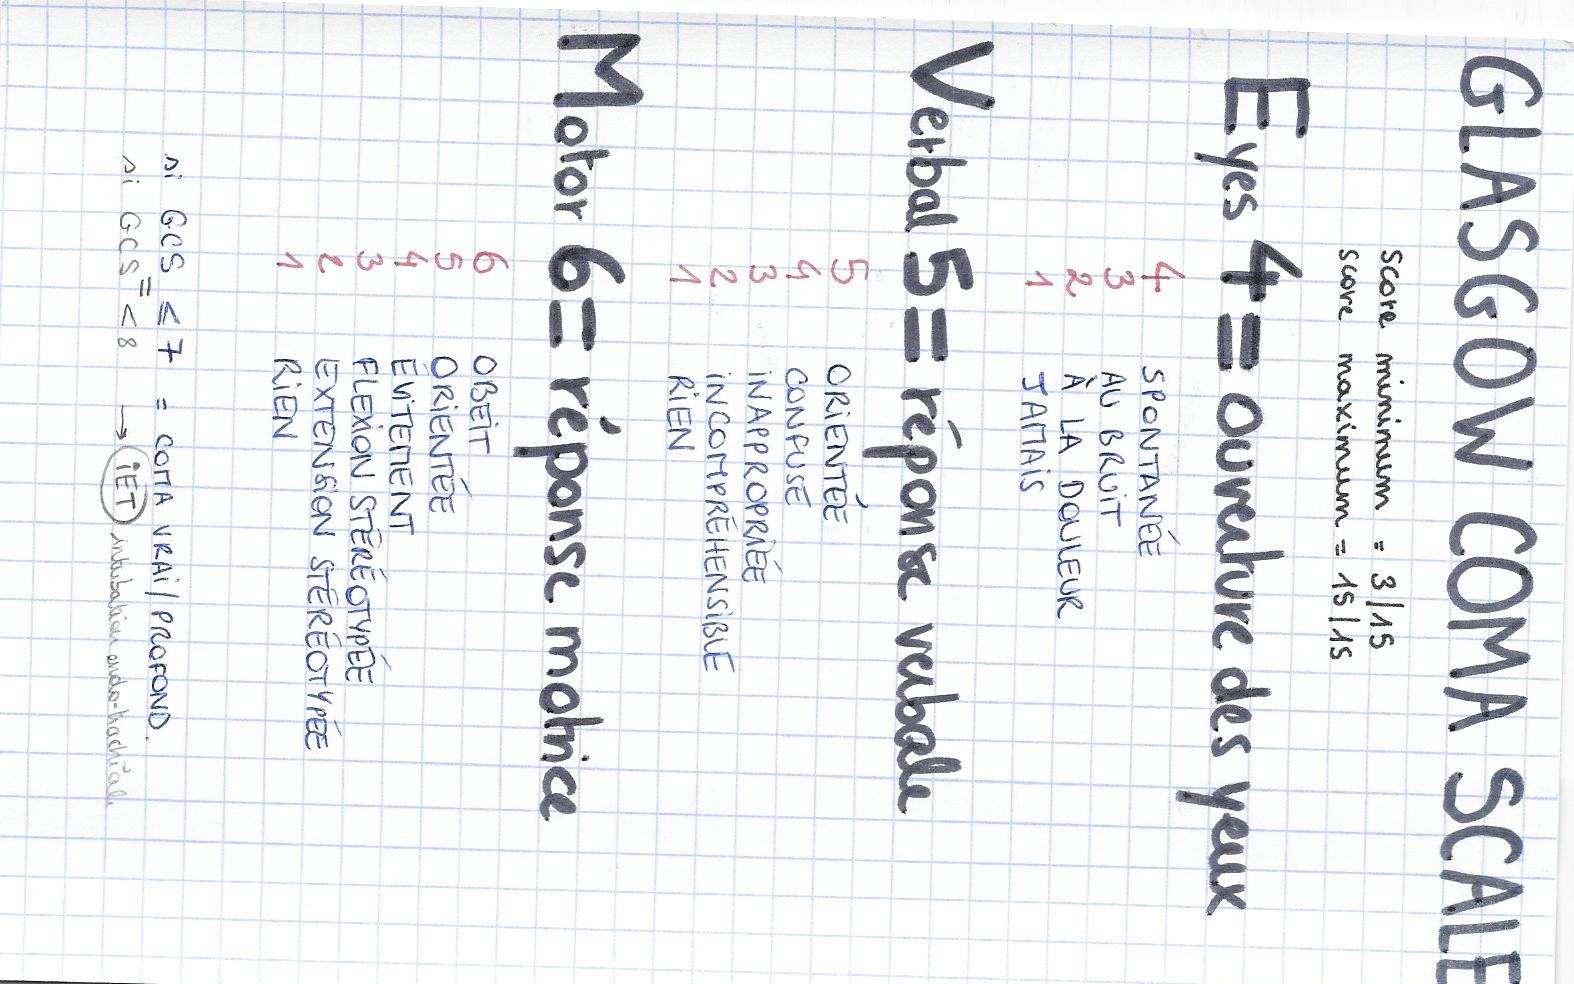 GLASGOW COMA SCALE
score minimum = 3/15
score maximum = 15/15
Eyes 4 = ouverture des yeux
4 SPONTANÉE
3 AU BRUIT
2 À LA DOULEUR
1 JAMAIS
Verbal 5 = réponse verbale
5 ORIENTÉE
4 CONFUSE
3 INAPPROPRIÉE
2 INCOMPRÉHENSIBLE
1 RIEN
Motor 6 = réponse motrice
6 OBEIT
5 ORIENTÉE
4 ÉVITEMENT
3 FLEXION STÉRÉOTYPÉE
2 EXTENSION STÉRÉOTYPÉE
1 RIEN
si GCS ≤ 7 = COMA VRAI/PROFOND.
si GCS = < 8 → IET intubation endo-trachéale